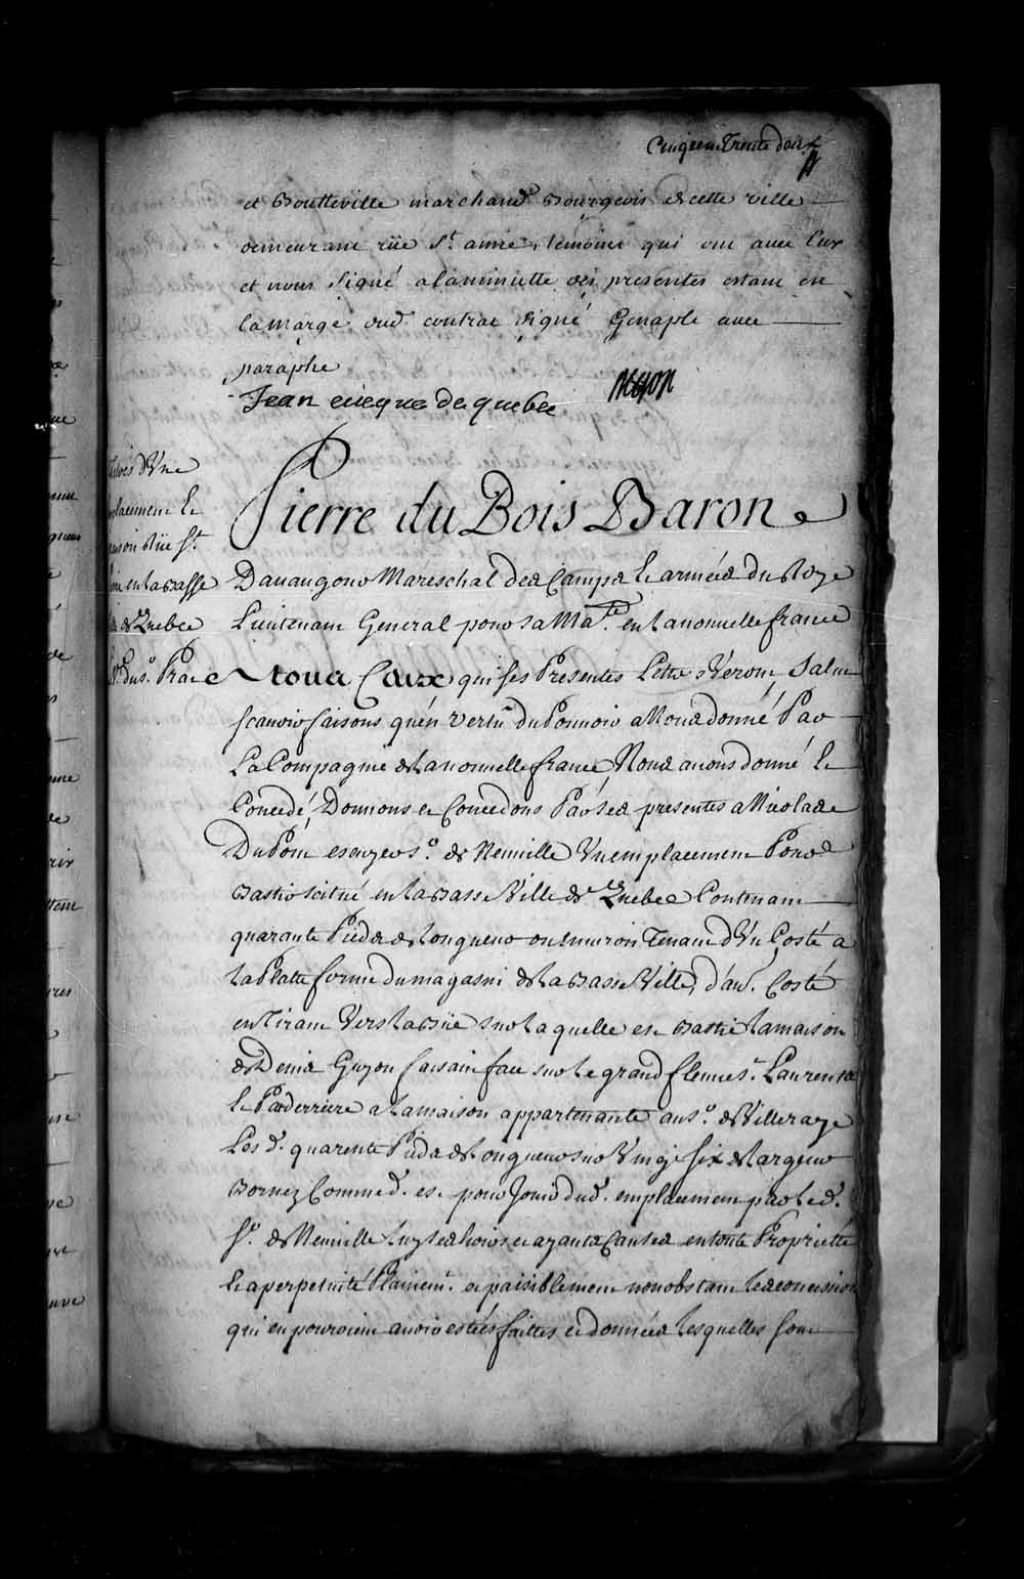 Cinq cens Trente deux
et Boutteville marchand Bourgeois de cette ville
demeurant rüe St. anne, temoins qui ont avec Eux
et nous signé a la minutte des presentes estant en
la marge dud. contrat signé Genaple avec
paraphe
Jean eveque de quebec
d'Une
placement Et
maison Rüe St.
en la Basse
de Quebec
Pierre du Bois Baron
Davaugour Mareschal des Camps Et armées du Roye
Lieutenant General pour sa Ma.té en la nouvelle france
A tous Ceux qui ses Presentes Lettres Verront, Salut
scavoir faisons qu'en vertu du Pouvoir a Nous donné Par
La Compagnie de La nouvelle france Nous avons donné Et
Concedé, Donnons et Concedons Par ses presentes a Nicolas
DuPont escuyer Sr. de Neuville Un emplacement Pour
Bastir scitué en la Basse Ville de Quebec Contenant
quarante Pieds de Longueur ou environ Tenant d'Un Costé a
La Platte forme du magasin de La Basse Ville, d'au. Costé
en Tirant Vers La Rüe sur La quelle est Bastie La maison
de Denis Guyon faisant face sur Le grand fleuve St. Laurent
Et Par derriere a La maison appartenante au Sr. de Villeraye
Les d. quarente Pieds de Longueur sur Vingt six de Largeur
Bornez Comme d. est pour Jouir dud. emplacement par Led.
Sr. de Neuville Luy ses hoirs et ayants Causes en toute Proprietté
Et a perpetuité Plainemt. et paisiblement nonobstant Les concessions
qui en pourroient avoir estées faittes et données Lesquelles sont